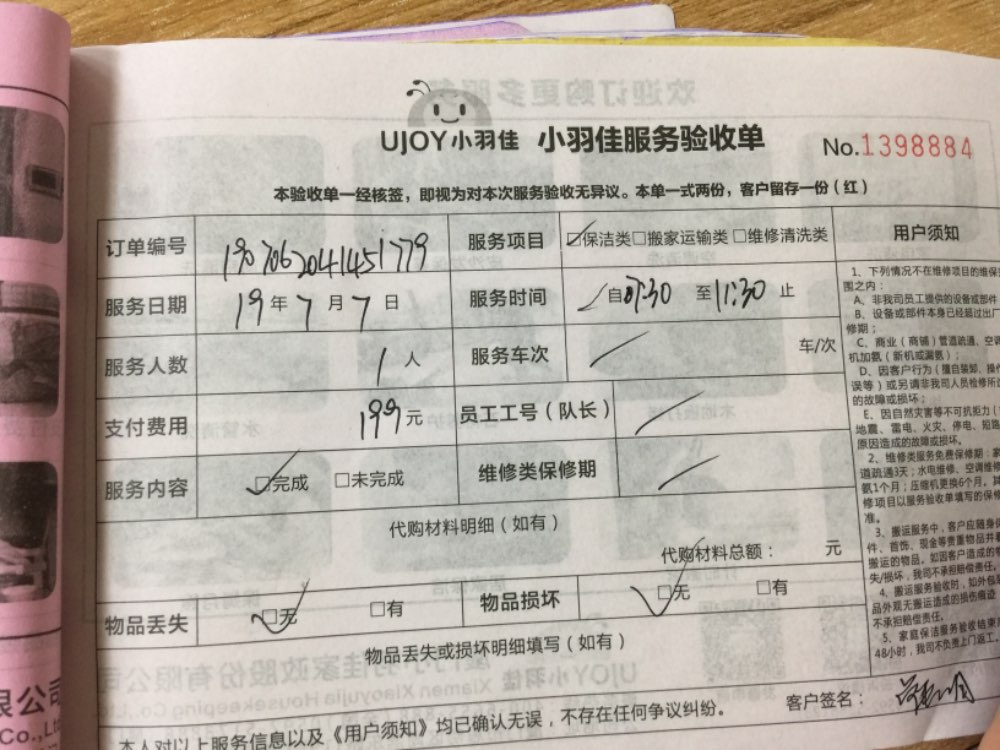 UJOY小羽佳 小羽佳服务验收单 No.1398884
本验收单一经核签，即视为对本次服务验收无异议。本单一式两份，客户留存一份（红）
订单编号 1907062041451779 服务项目 ☑保洁类□搬家运输类□维修清洗类
服务日期 19年7月7日 服务时间 自07:30 至11:30 止
服务人数 1人 服务车次 车/次
支付费用 199元 员工工号（队长）
服务内容 ☑完成 □未完成 维修类保修期
代购材料明细（如有）
代购材料总额： 元
物品丢失 ☑无 □有 物品损坏 ☑无 □有
物品丢失或损坏明细填写（如有）
本人对以上服务信息以及《用户须知》均已确认无误，不存在任何争议纠纷。 客户签名：
用户须知
1、下列情况不在维修项目的维保范
围之内：
A、非我司员工提供的设备或部件
B、设备或部件本身已经超过出厂
修期；
C、商业（商铺）管道疏通、空调
机加氨（新机或漏氨）；
D、因客户行为（擅自装卸、操作
误等）或另请非我司人员检修所造
的故障或损坏；
E、因自然灾害等不可抗拒力（
地震、雷电、火灾、停电、短路
原因造成的故障或损坏。
2、维修类服务免费保修期：家
道疏通3天；水电维修、空调维修
氨1个月；压缩机更换6个月。其
修项目以服务验收单填写的保修
准。
3、搬运服务中，客户应随身保
件、首饰、现金等贵重物品并看
搬运的物品。如因客户造成的
失/损坏，我司不承担赔偿责任。
4、搬运服务验收时，如外包
品外观无搬运造成的损伤痕迹
不承担赔偿责任。
5、家庭保洁服务验收结束
48小时，我司不负责上门返工。
限公司
Co.,Ltd